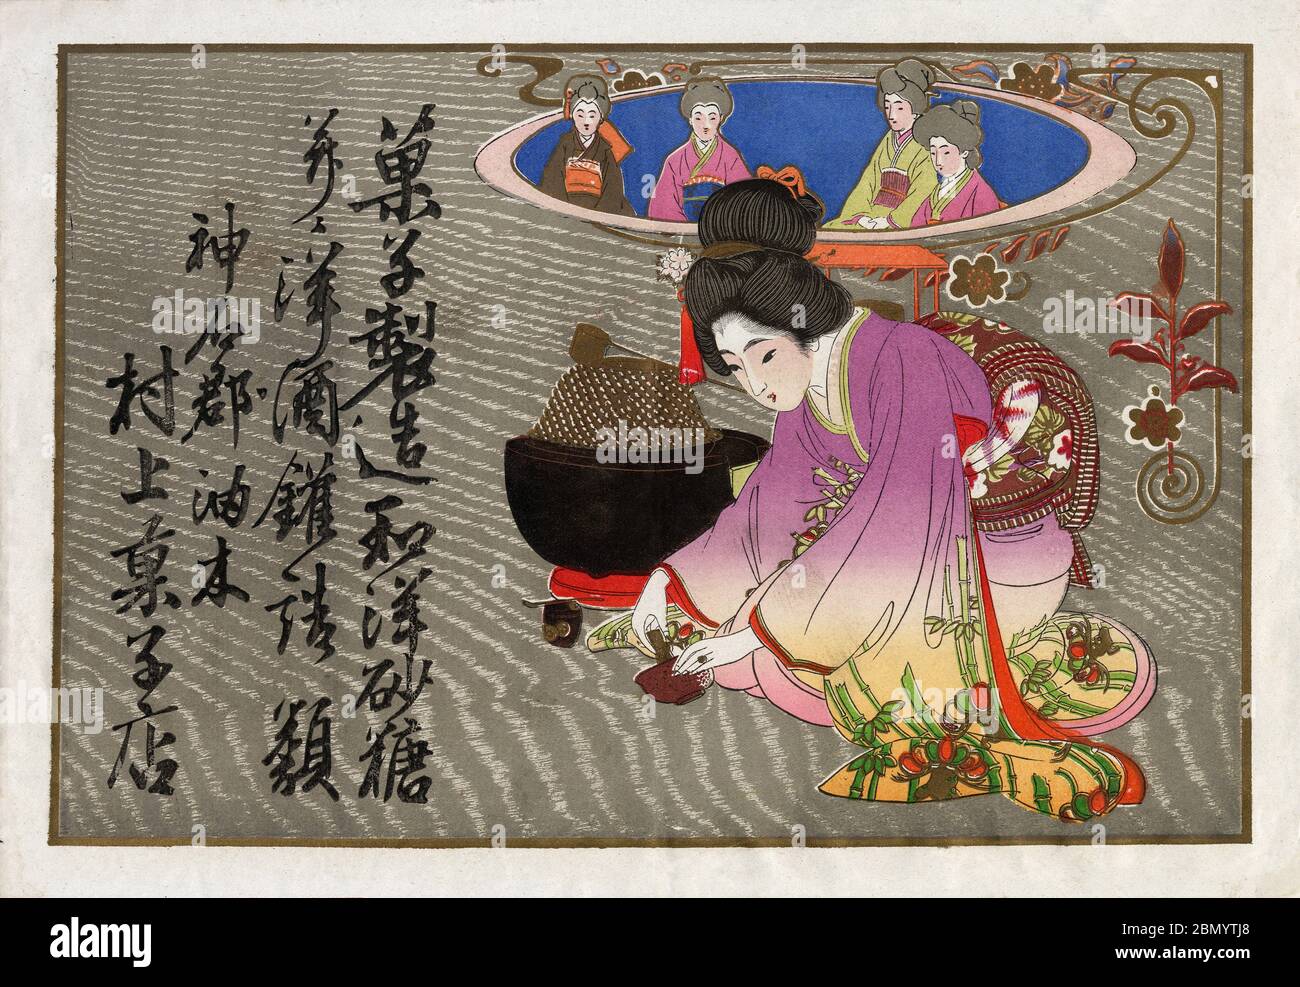 菓子製造和洋砂糖
并ニ洋酒鑵詰類
神石郡油木
村上菓子店
a
alamy
Image ID: 2BMYTJ8
www.alamy.com